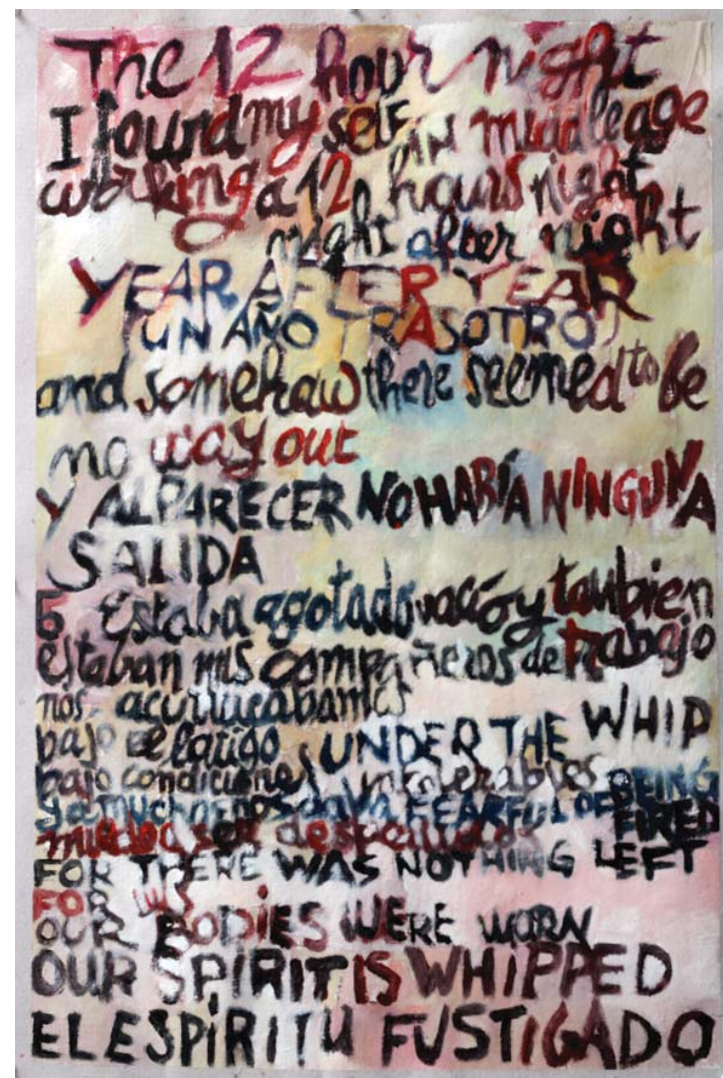 The 12 hour night
I found my self IN middle age
working a 12 hours night
night after night
YEAR AFTER YEAR
(UN AÑO TRAS OTRO)
and somehow there seemed to be
no way out
Y AL PARECER NO HABÍA NINGUNA
SALIDA
Estaba agotado vacío y tambien
estaban mis compañeros de trabajo
nos acurrucabamos
bajo el latigo UNDER THE WHIP
bajo condiciones intolerables BEING
y a muchos nos daba FEARFUL OF FIRED
miedo ser despedidos
FOR THERE WAS NOTHING LEFT
FOR US
OUR BODIES WERE WORN
OUR SPIRIT IS WHIPPED
EL ESPÍRITU FUSTIGADO